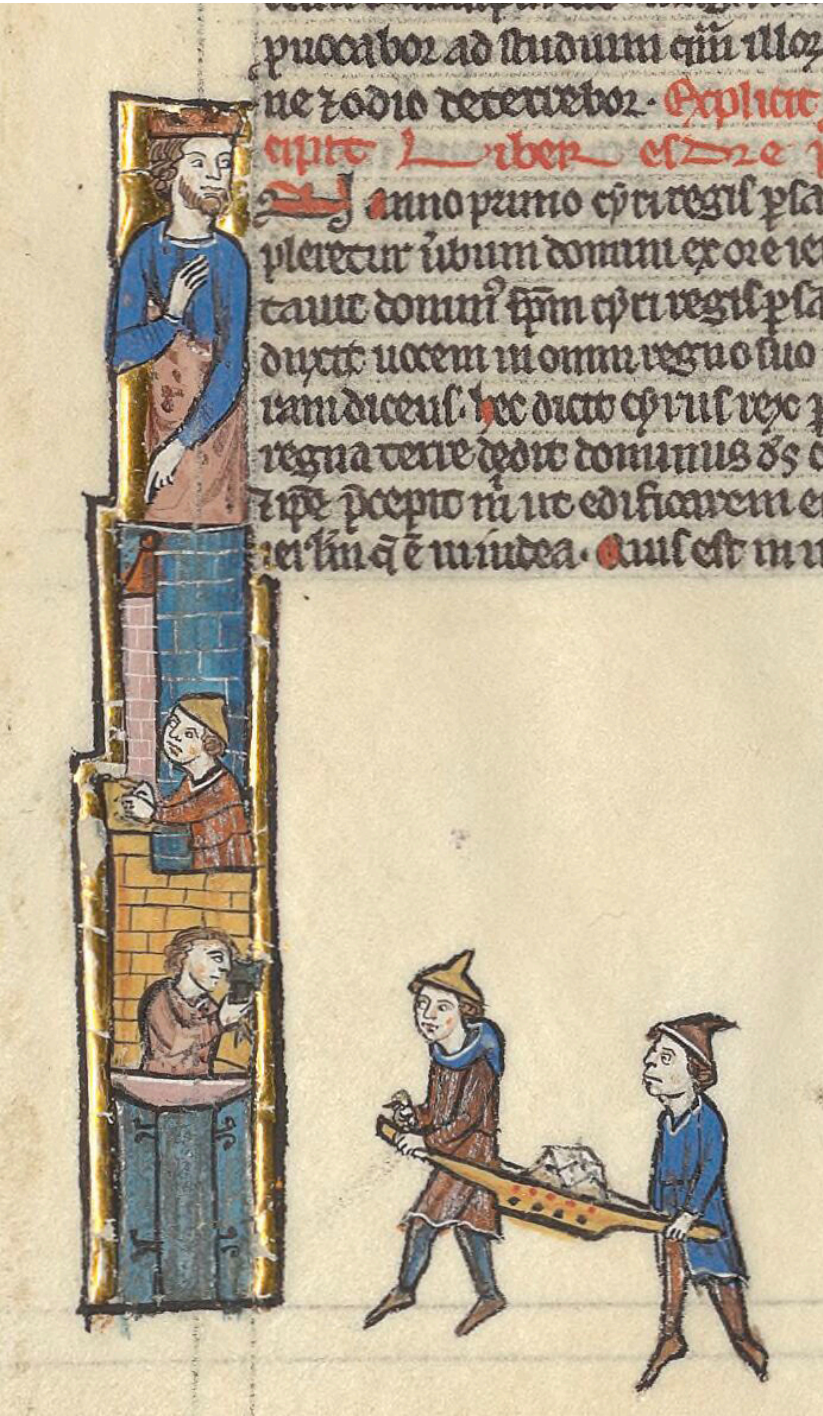 ꝓuocabor ad studium qm̄ illoꝝ
ne ⁊ odio deterrebor. Explicit
cipit Liber esdre
N anno primo cyri regis ꝑsa
pleretur ũbum domini ex ore ie
tauit domin᷒ sp̄m cyri regis ꝑsa
duxit uocem in omni regno suo
ram dicens. hec dicit cyrus rex ꝑ
regna terre dedit dominus ds̄ c
⁊ ip̄e p̄cepit m̄ ut edificarem e
ierl̄m q̄ ē in iudea. Quis est in u